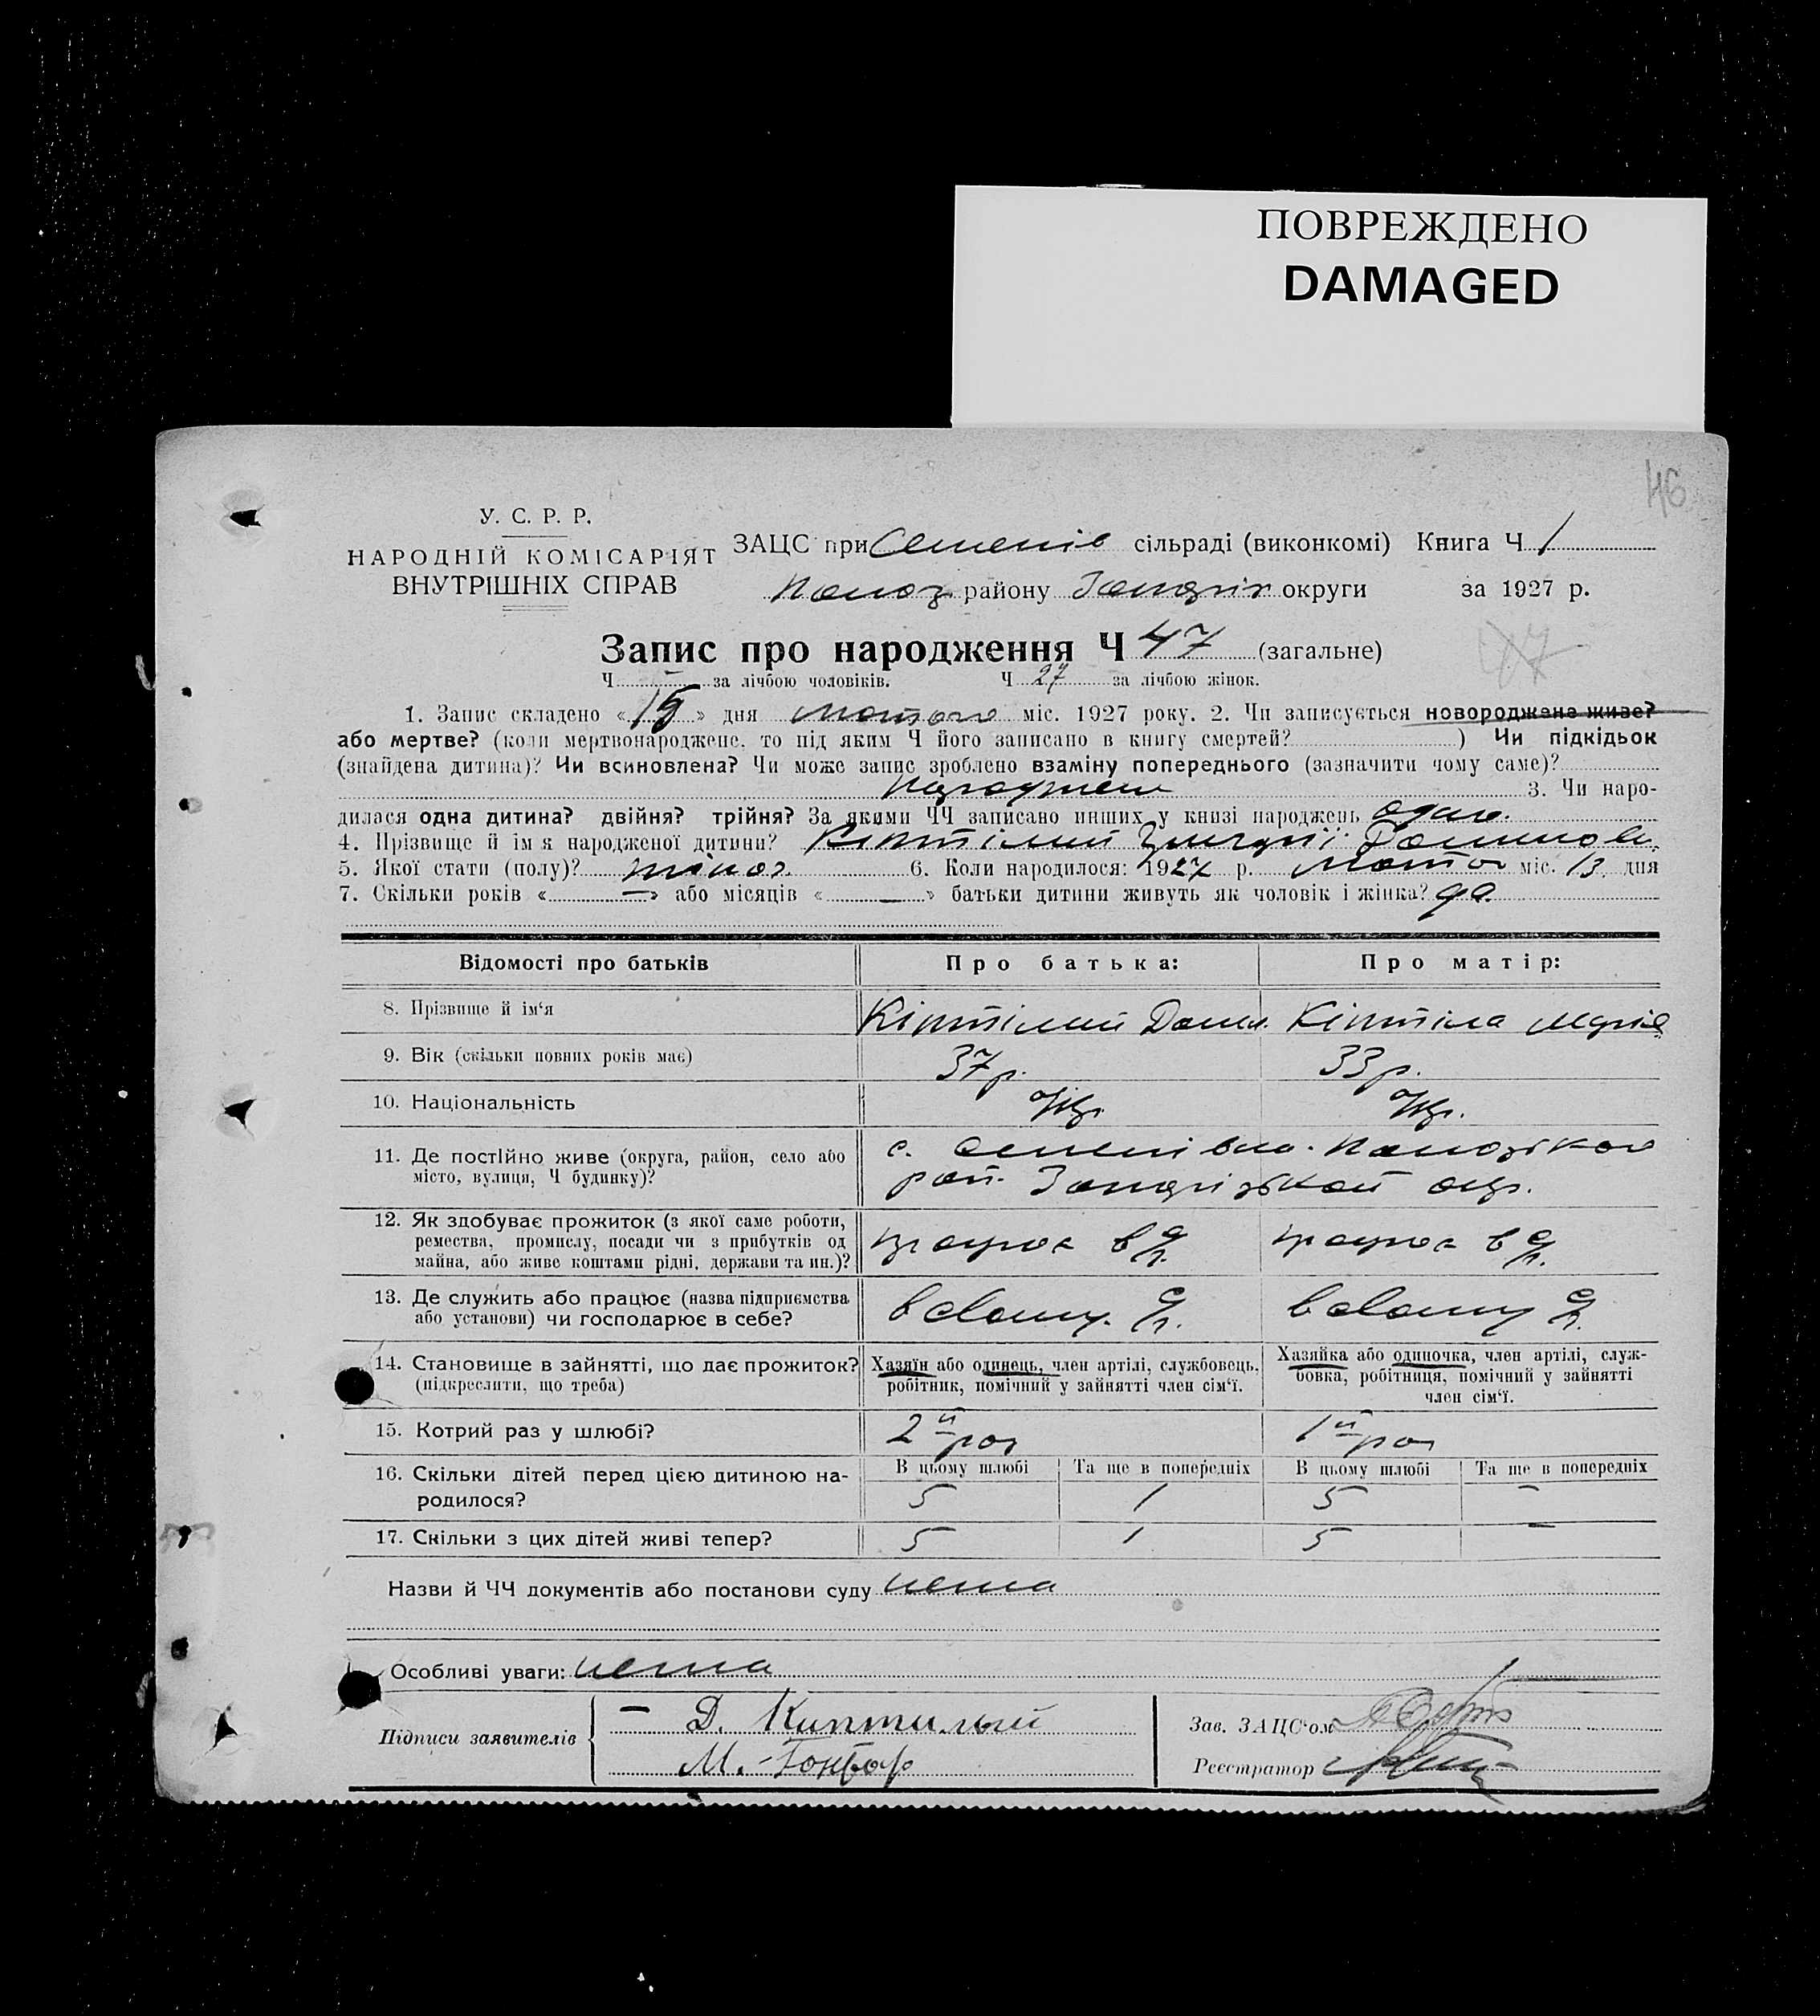 ПОВРЕЖДЕНО
DAMAGED
46
У. С. Р. Р.
НАРОДНІЙ КОМІСАРІЯТ
ВНУТРІШНІХ СПРАВ
ЗАЦС при Семенів сільраді (виконкомі) Книга Ч 1
району округи за 1927 р.
Запис про народження Ч 47 (загальне)
47
Ч — за лічбою чоловіків. Ч 27 за лічбою жінок.
1. Запис складено « 15 » дня лютого міс. 1927 року. 2. Чи записується новороджене живе?
або мертве? (коли мертвонароджене, то під яким Ч його записано в книгу смертей? ) Чи підкідьок
(знайдена дитина)? Чи всиновлена? Чи може запис зроблено взаміну попереднього (зазначити чому саме)?
3. Чи наро-
дилася одна дитина? двійня? трійня? За якими ЧЧ записано инших у книзі народжень одно.
4. Прізвище й ім я народженої дитини? Кіптілий
5. Якої стати (полу)? жіноч. 6. Коли народилося: 1927 р. лютого міс. 13. дня
7. Скільки років « — » або місяців « — » батьки дитини живуть як чоловік і жінка? да.
Відомості про батьків Про батька: Про матір:
8. Прізвище й ім‘я Кіптілий Данил. Кіптіла Марія
9. Вік (скільки повних років має) 37 р. 33 р.
10. Національність Укр. Укр.
11. Де постійно живе (округа, район, село або с. Семенівка.
місто, вулиця, Ч будинку)? рай. окр.
12. Як здобуває прожиток (з якої саме роботи,
ремества, промислу, посади чи з прибутків од працює в с/г. працює в с/г.
майна, або живе коштами рідні, держави та ин.)?
13. Де служить або працює (назва підприємства
або установи) чи господарює в себе? в свому. с/г. в свому с/г.
14. Становище в зайнятті, що дає прожиток? Хазяїн або одинець, член артілі, службовець, Хазяйка або одиночка, член артілі, служ-
(підкреслити, що треба) робітник, помічний у зайнятті член сім‘ї. бовка, робітниця, помічний у зайнятті
член сім‘ї.
15. Котрий раз у шлюбі? 2й раз 1й раз
16. Скільки дітей перед цією дитиною на- В цьому шлюбі Та ще в попередніх В цьому шлюбі Та ще в попередніх
родилося? 5 1 5 —
17. Скільки з цих дітей живі тепер? 5 1 5 —
Назви й ЧЧ документів або постанови суду нема
Особливі уваги: нема
Підписи заявителів — Д. Киптилый
М. Гонтар
Зав. ЗАЦС‘ом
Реєстратор